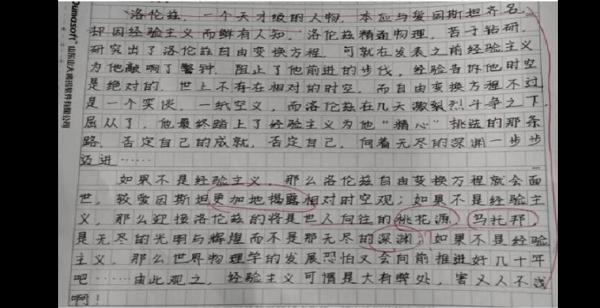 Oumasoft 山东山大鸥玛软件有限公司
洛伦兹，一个天才级的人物，本应与爱因斯坦齐名，
却因经验主义而鲜有人知。洛伦兹精通物理，苦于钻研，
研究出了洛伦兹自由变换方程，可就在发表之前经验主义
为他敲响了警钟，阻止了他前进的步伐，经验告诉他时空
是绝对的，世上不存在相对的时空，而自由变换方程不过
是一个笑谈，一纸空义，而洛伦兹在几天激裂烈斗争之下，
屈从了，他最终踏上了经验主义为他“精心”挑选的那条
路，否定自己的成就，否定自己，向着无尽的深渊一步步
迈进……
如果不是经验主义，那么洛伦兹自由变换方程就会面
世，较爱因斯坦更加地揭露相对时空观；如果不是经验主
义，那么迎接洛伦兹的将是世人向往的桃花源，乌托邦，
是无尽的光明与辉煌而不是那无尽的深渊；如果不是经验
主义，那么世界物理学的发展恐怕又会向前推进好几十年
吧……由此观之，经验主义可谓是大有弊处，害义人不浅
啊！